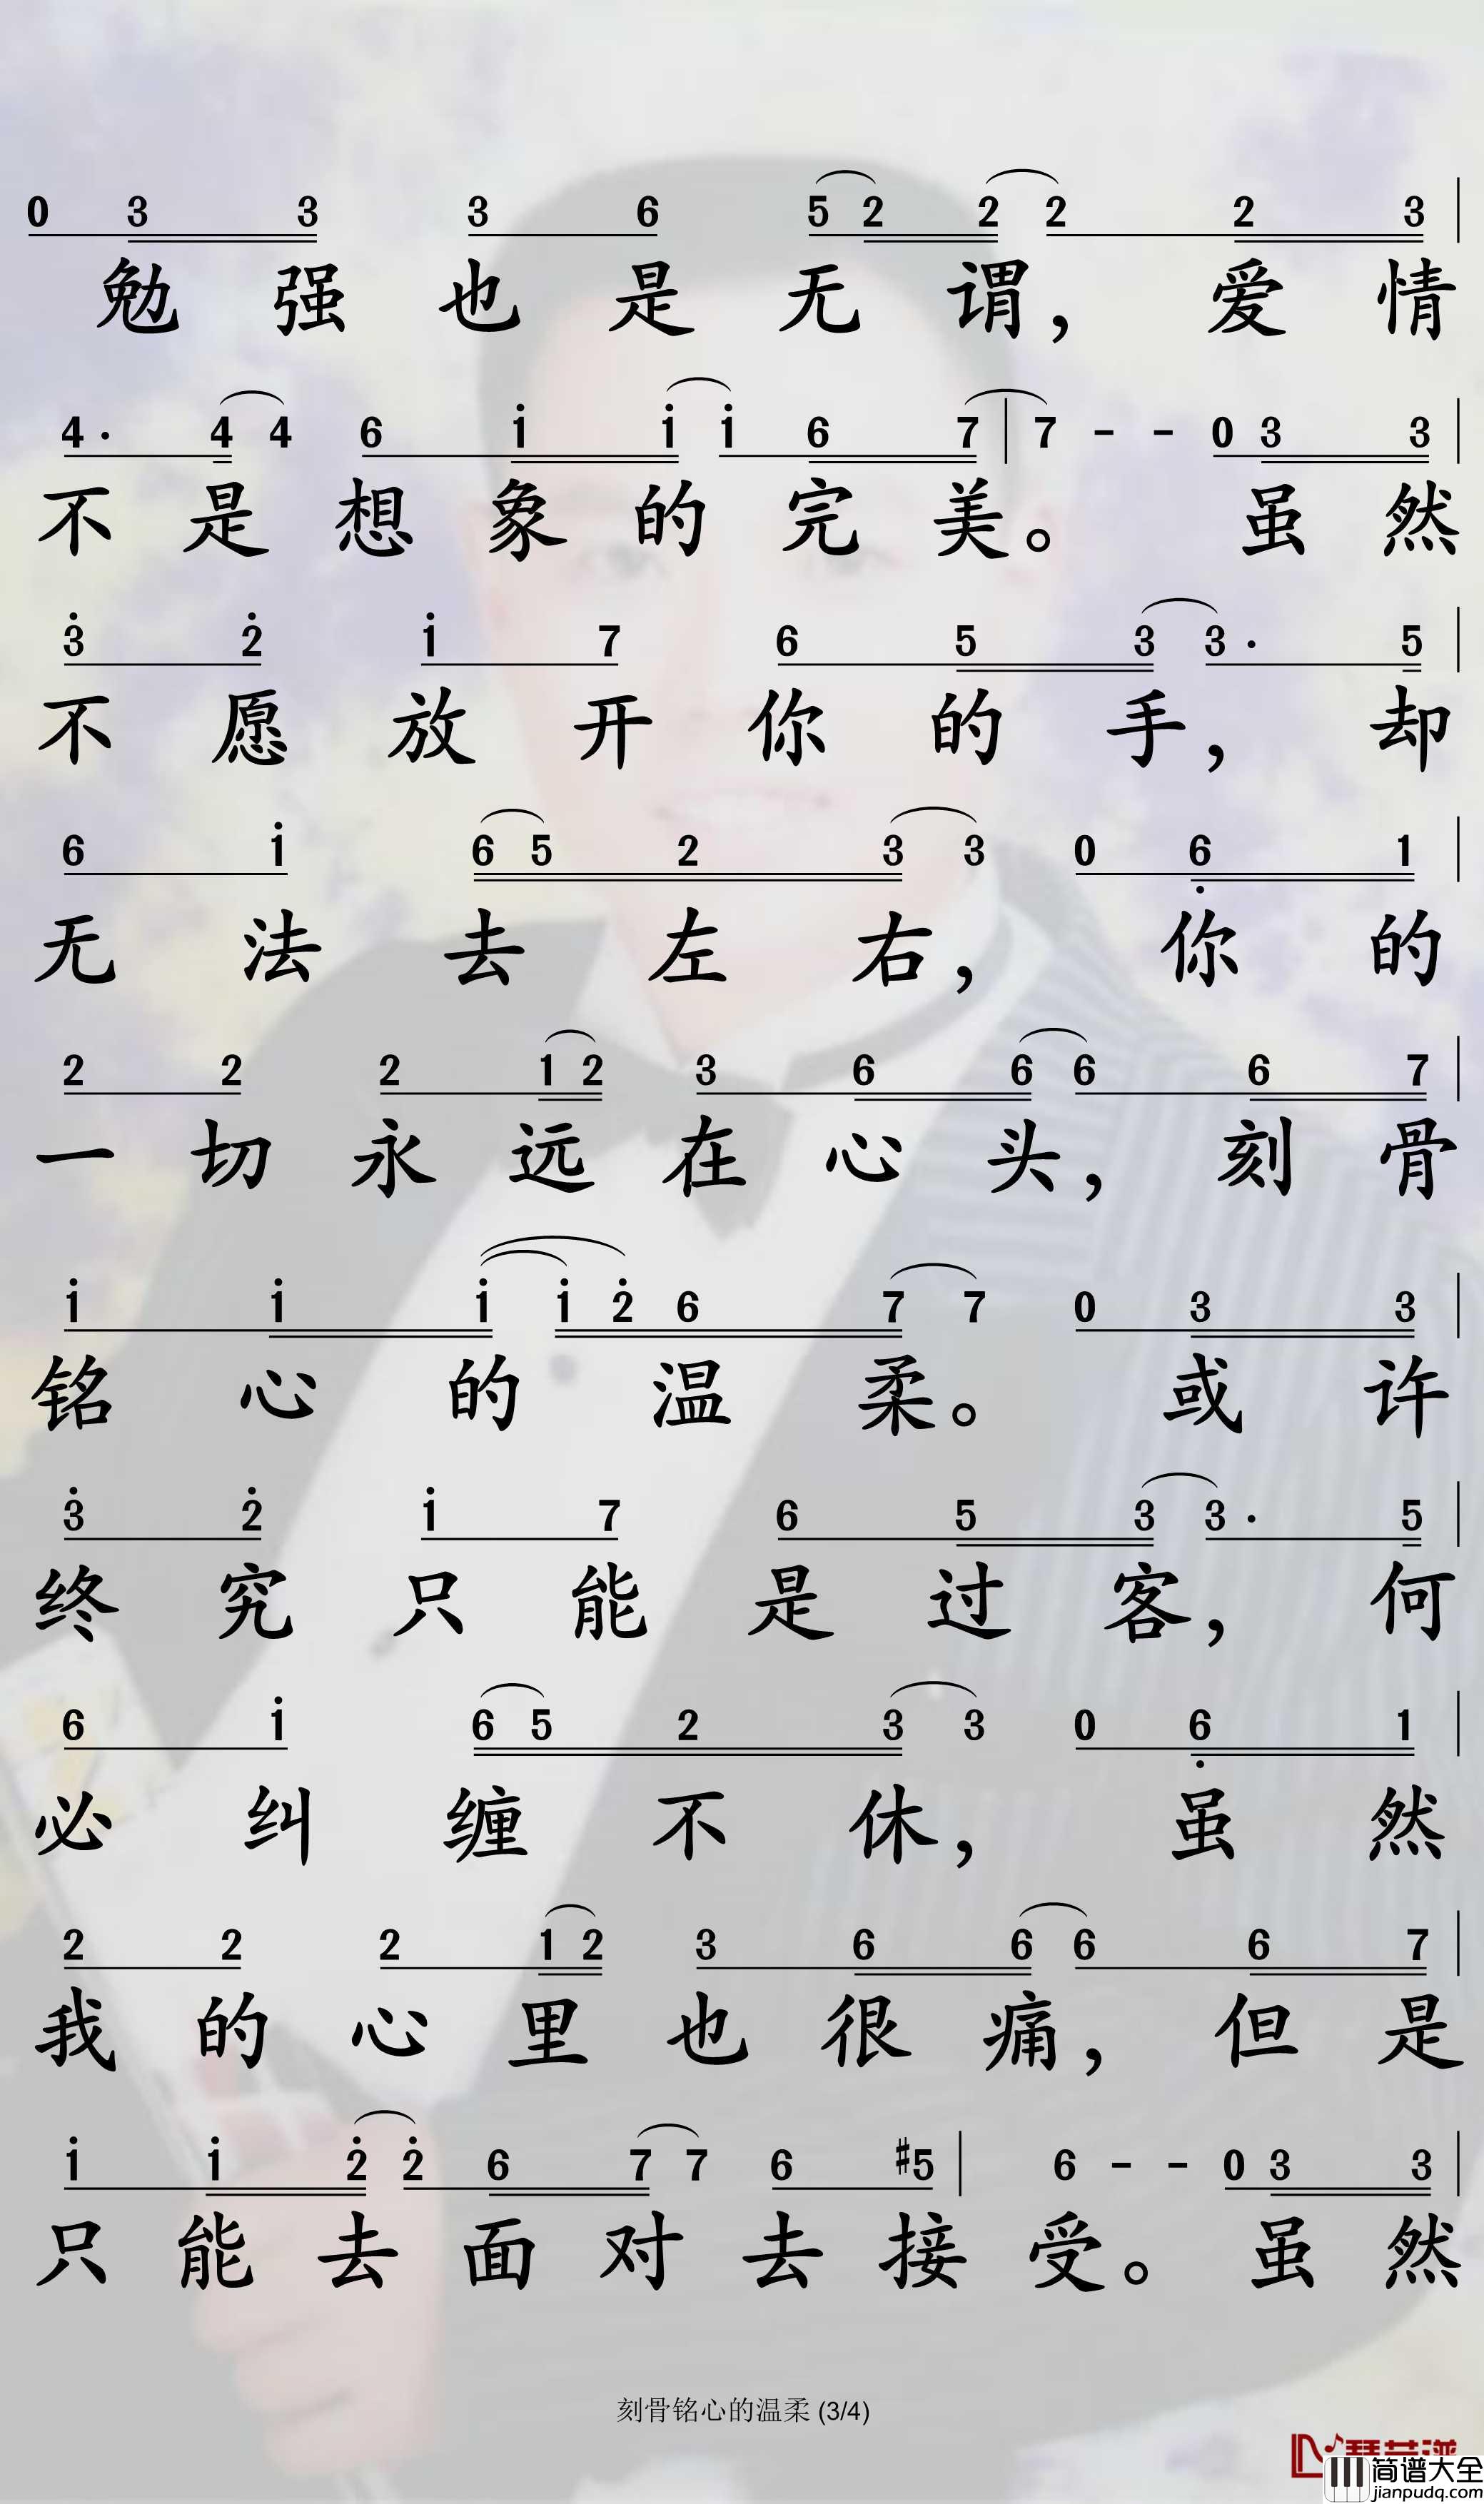 0 3 3 3 6 5 2 2 2 2 3
勉强也是无谓，爱情
4· 4 4 6 i i i 6 7 | 7 - - 0 3 3
不是想象的完美。虽然
3̇ 2̇ i 7 6 5 3 3· 5
不愿放开你的手，却
6 i 6 5 2 3 3 0 6̣ 1
无法去左右，你的
2 2 2 1 2 3 6 6 6 6 7
一切永远在心头，刻骨
i i i i 2̇ 6 7 7 0 3 3
铭心的温柔。或许
3̇ 2̇ i 7 6 5 3 3· 5
终究只能是过客，何
6 i 6 5 2 3 3 0 6̣ 1
必纠缠不休，虽然
2 2 2 1 2 3 6 6 6 6 7
我的心里也很痛，但是
i i 2̇ 2̇ 6 7 7 6 #5 | 6 - - 0 3 3
只能去面对去接受。虽然
刻骨铭心的温柔 (3/4)
简谱大全
jianpudq.com